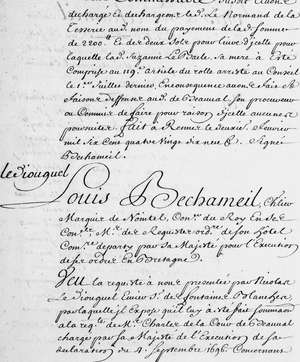 decharge et dechargeons led. Le Normand de la
Tesserie aud. nom du payement de la d. somme
de 2200ᵗᵗ Et de deux sols pour livre d'icelle pour
laquelle la d. Suzanne Le Barbe sa mere a esté
Comprise au 119ᵉ. article du rolle arresté au Conseil
le 1ᵉʳ. Juillet dernier, En consequence avons fait et
faisons deffense aud. de Beauval son procureur
ou Commis de faire pour raison d'icelle aucunes
poursuites fait a Rennes le
mil six cens quatre vingt dix neuf. Signé
Bechameil.
le diouguel
Louis Bechameil, Chlier
Marquis de Nointel, Conᵉʳ. du Roy En ses
Conᵉˡˢ, Mᵉ. des Requestes ordʳᵉ de son hotel
Comʳᵉ departy par sa Majesté pour l'Execution
de ses ordres En Bretagne.
Veu la requeste a nous presentée par Nicolas
Le Diouguel Ecuier Sʳ. de
par laquelle il expose qu'on luy a fait sommation
a la reqᵗᵉ de Mᵉ. Charles de la Cour de Beauval
chargé par sa Majesté de l'Execution de sa
declaration du 4. Septembre 1696. Concernant